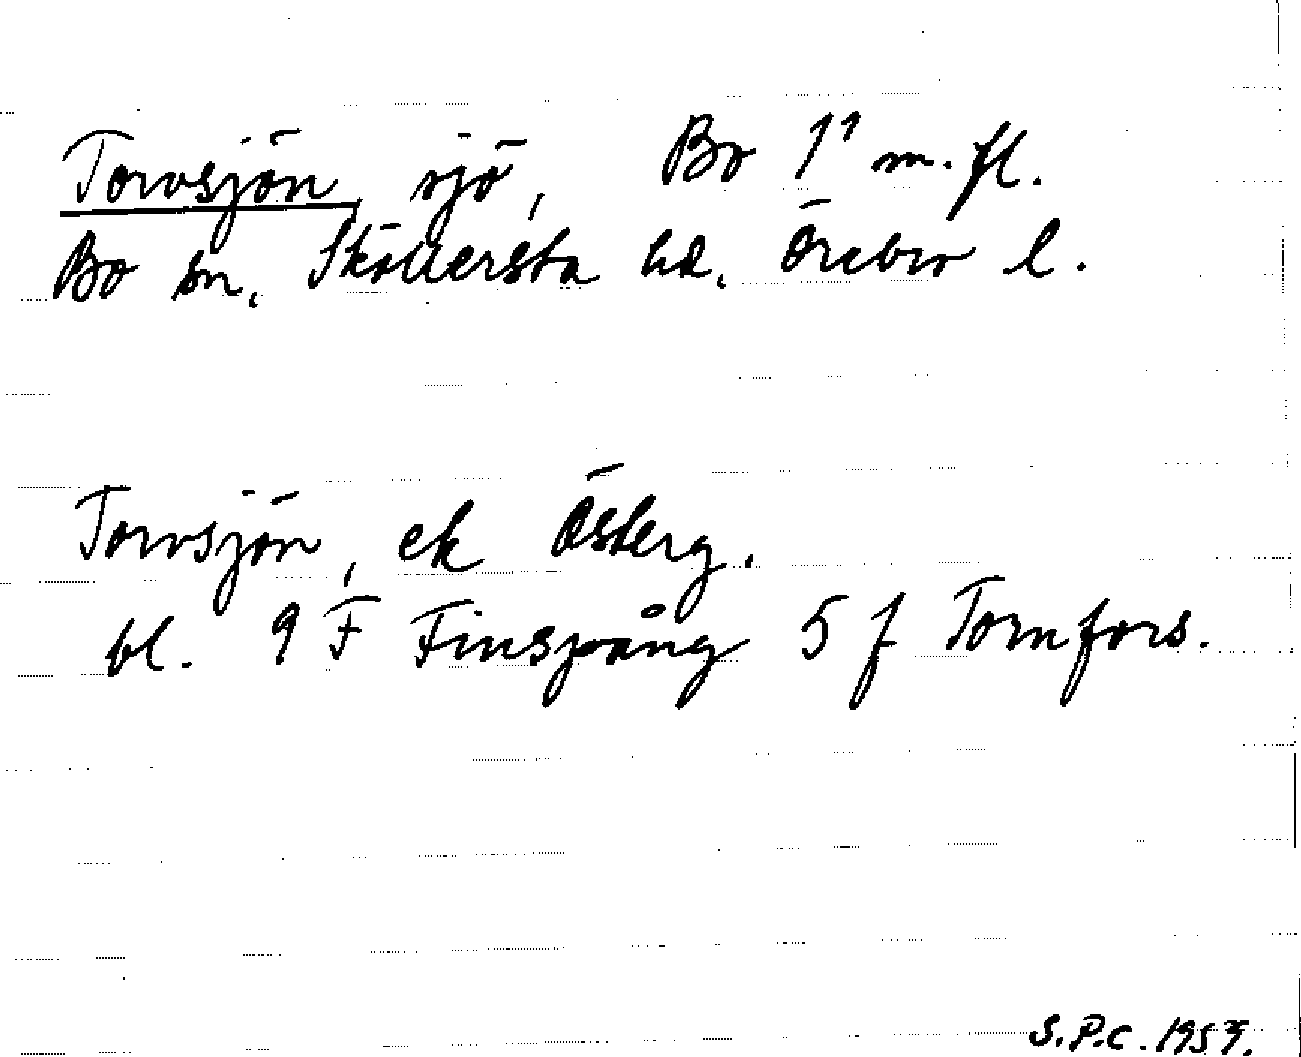 Torvsjön, sjö, Bo 1¹ m.fl.
Bo sn, Sköllersta hd, Örebro l.
Torvsjön, ek Österg.
bl. 9 F Finspång 5 f Tornfors.
S.P.C. 1957.